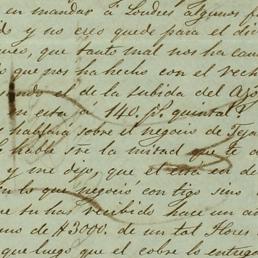 en mandar á Londres algunos
y no creo quede para el di
que tanto mal nos ha cau
que nos ha hecho con el rech
el de la subida del Azo
en esta á 140. ps. quintal
hablara sobre el negocio de
hable sre la mitad que te
y me dijo, que el está en de
lo que negoció con tigo sino
has recibido hace un
de $3000. de un tal Flores
que luego que el cobre lo entrega